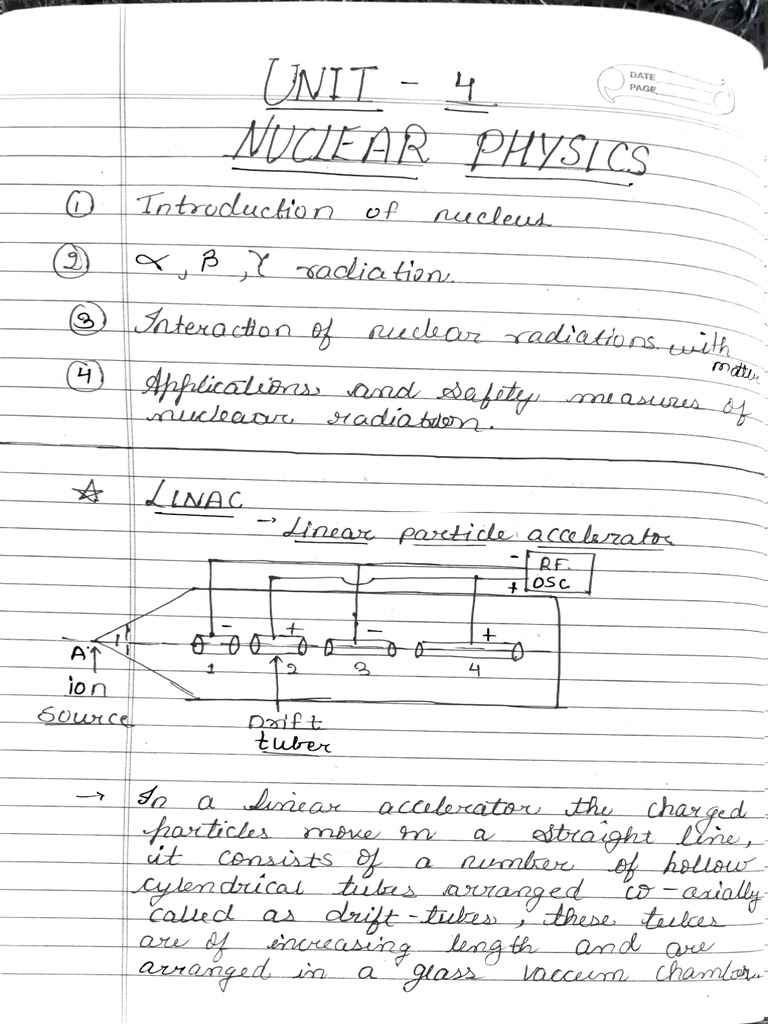 UNIT - 4
DATE
PAGE
NUCLEAR PHYSICS
① Introduction of nucleus
② α, β, γ radiation.
③ Interaction of nuclear radiations with
matter
④ Applications and safety measures of
nucleaor radiation.
☆ LINAC
→ Linear particle accelerator
- RF.
+ OSC
- + - +
A
1 2 3 4
ion
source
Drift
tuber
→ In a linear accelerator the charged
particles move in a straight line,
it consists of a number of hollow
cylendrical tubes arranged co-axially
called as drift-tubes, these tubes
are of increasing length and are
arranged in a glass vaccum chamber.